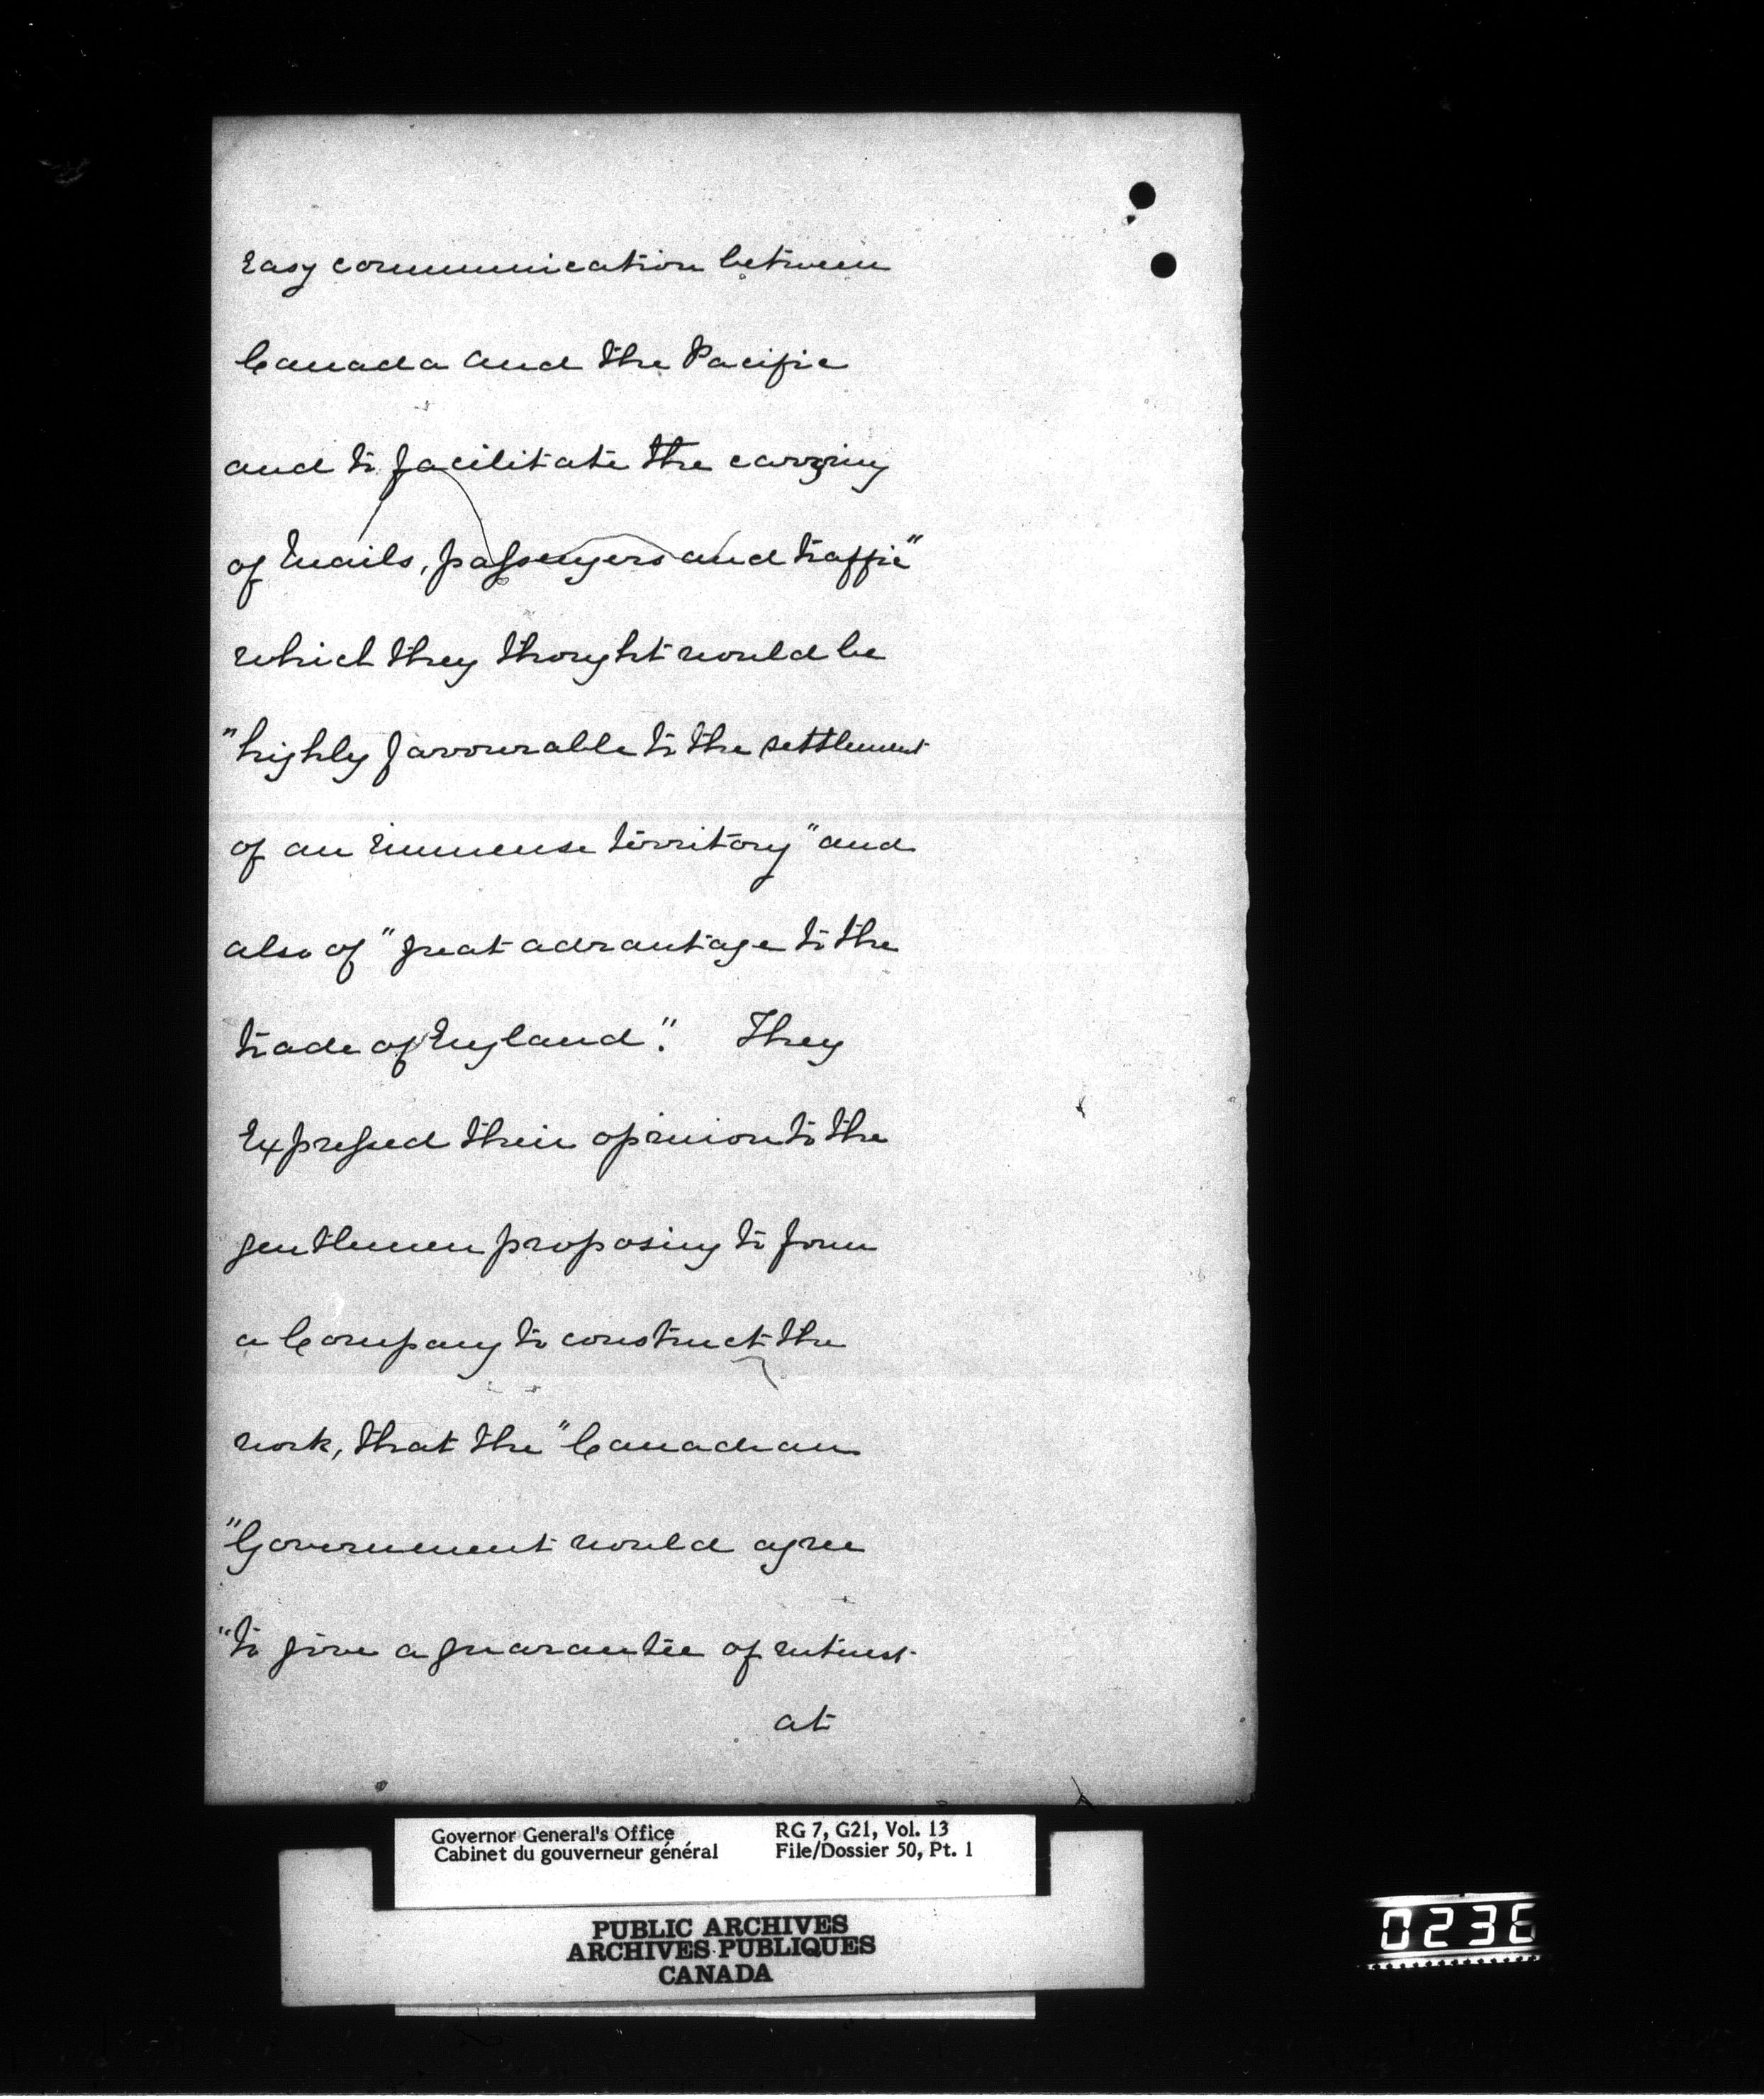 Easy communication between
Canada and the Pacific
and to facilitate the carrying
of Mails, passengers and traffic"
which they thought would be
"highly favourable to the settlement
of an immense territory" and
also of "great advantage to the
trade of England". They
Expressed their opinion to the
gentlemen proposing to form
a Company to construct the
work, that the "Canadian
"Government would agree
"to give a guarantee of interest
at
Governor General's Office
Cabinet du gouverneur général
RG 7, G21, Vol. 13
File/Dossier 50, Pt. 1
PUBLIC ARCHIVES
ARCHIVES PUBLIQUES
CANADA
0236